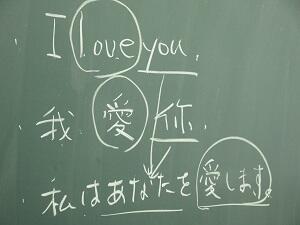 I love you.
我 愛 你.
私はあなたを愛します。